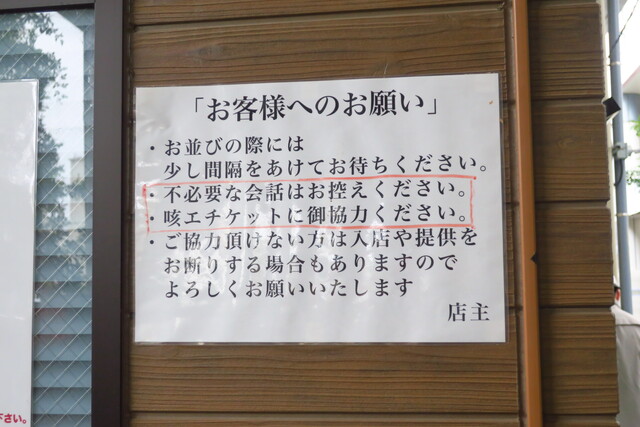 「お客様へのお願い」
・お並びの際には
少し間隔をあけてお待ちください。
・不必要な会話はお控えください。
・咳エチケットに御協力ください。
・ご協力頂けない方は入店や提供を
お断りする場合もありますので
よろしくお願いいたします
店主
下さい。